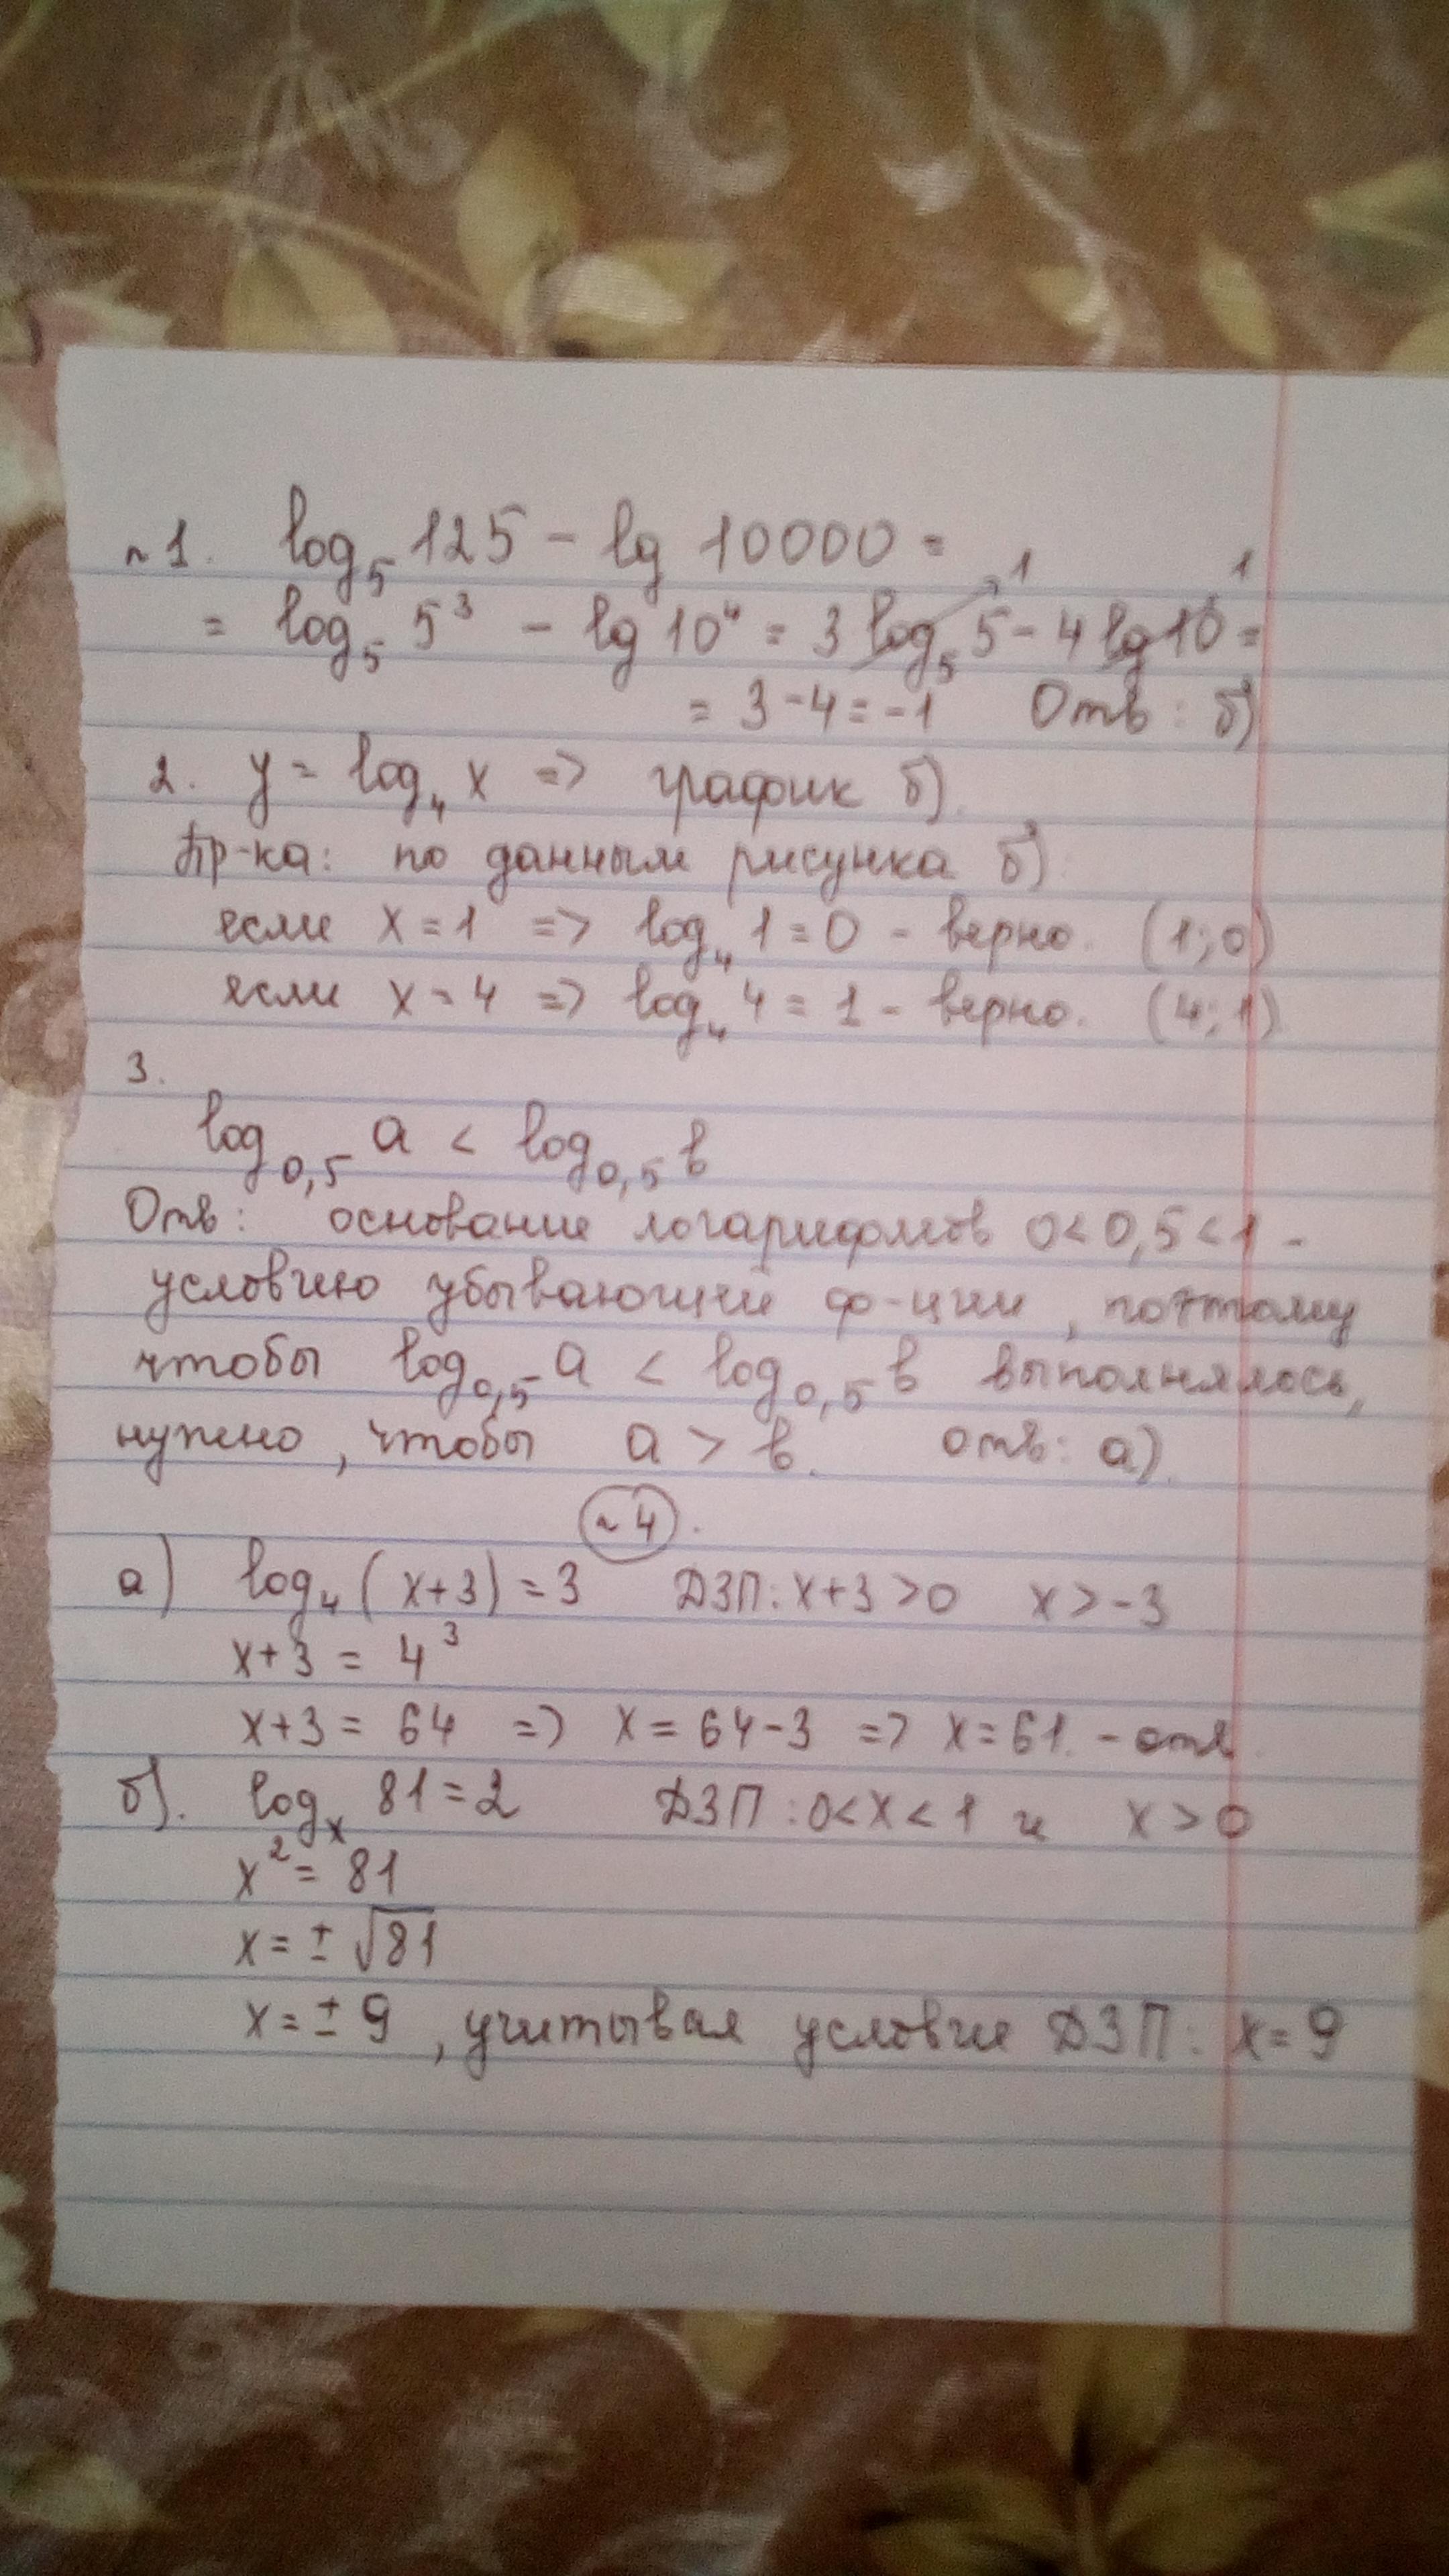 №1. log₅ 125 - lg 10000 =
= log₅ 5³ - lg 10⁴ = 3 log₅ 5 - 4 lg 10 =
1 1
= 3 - 4 = -1 Отв: б)
2. y = log₄ x => график б).
Пр-ка: по данным рисунка б)
если x = 1 => log₄ 1 = 0 - верно. (1; 0)
если x = 4 => log₄ 4 = 1 - верно. (4; 1)
3.
log₀,₅ a < log₀,₅ b
Отв: основание логарифмов 0 < 0,5 < 1 -
условию убывающей ф-ции, поэтому
чтобы log₀,₅ a < log₀,₅ b выполнялось,
нужно, чтобы a > b. отв: а).
№4.
а) log₄ (x+3) = 3 ДЗП: x+3 > 0 x > -3
x+3 = 4³
x+3 = 64 => x = 64-3 => x = 61. - отв.
б). logₓ 81 = 2 ДЗП: 0 < x < 1 и x > 0
x² = 81
x = ± √81
x = ± 9, учитывая условие ДЗП: x = 9